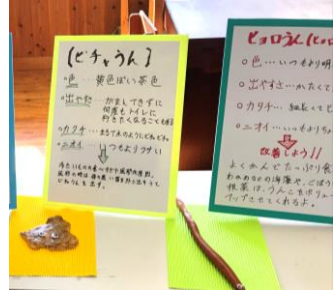 【ビチャうん】
・色…黄色ぽい茶色
・出やすさ…がまんできずに
何度もトイレに
行きたくなることもある
・カタチ…まるで水のようにどろどろ。
・ニオイ…いつもよりクサい
ヒョロうん(ヒョロ
○色…いつもより明
○出やすさ…かたくて
○カタチ…細長くてヒ
○ニオイ…いつもより
改善しよう!!
よくかんでたっぷり食
わかめなどの海藻や、ごぼう
根菜は、うんこをボリュー
アップさせてくれるよ。